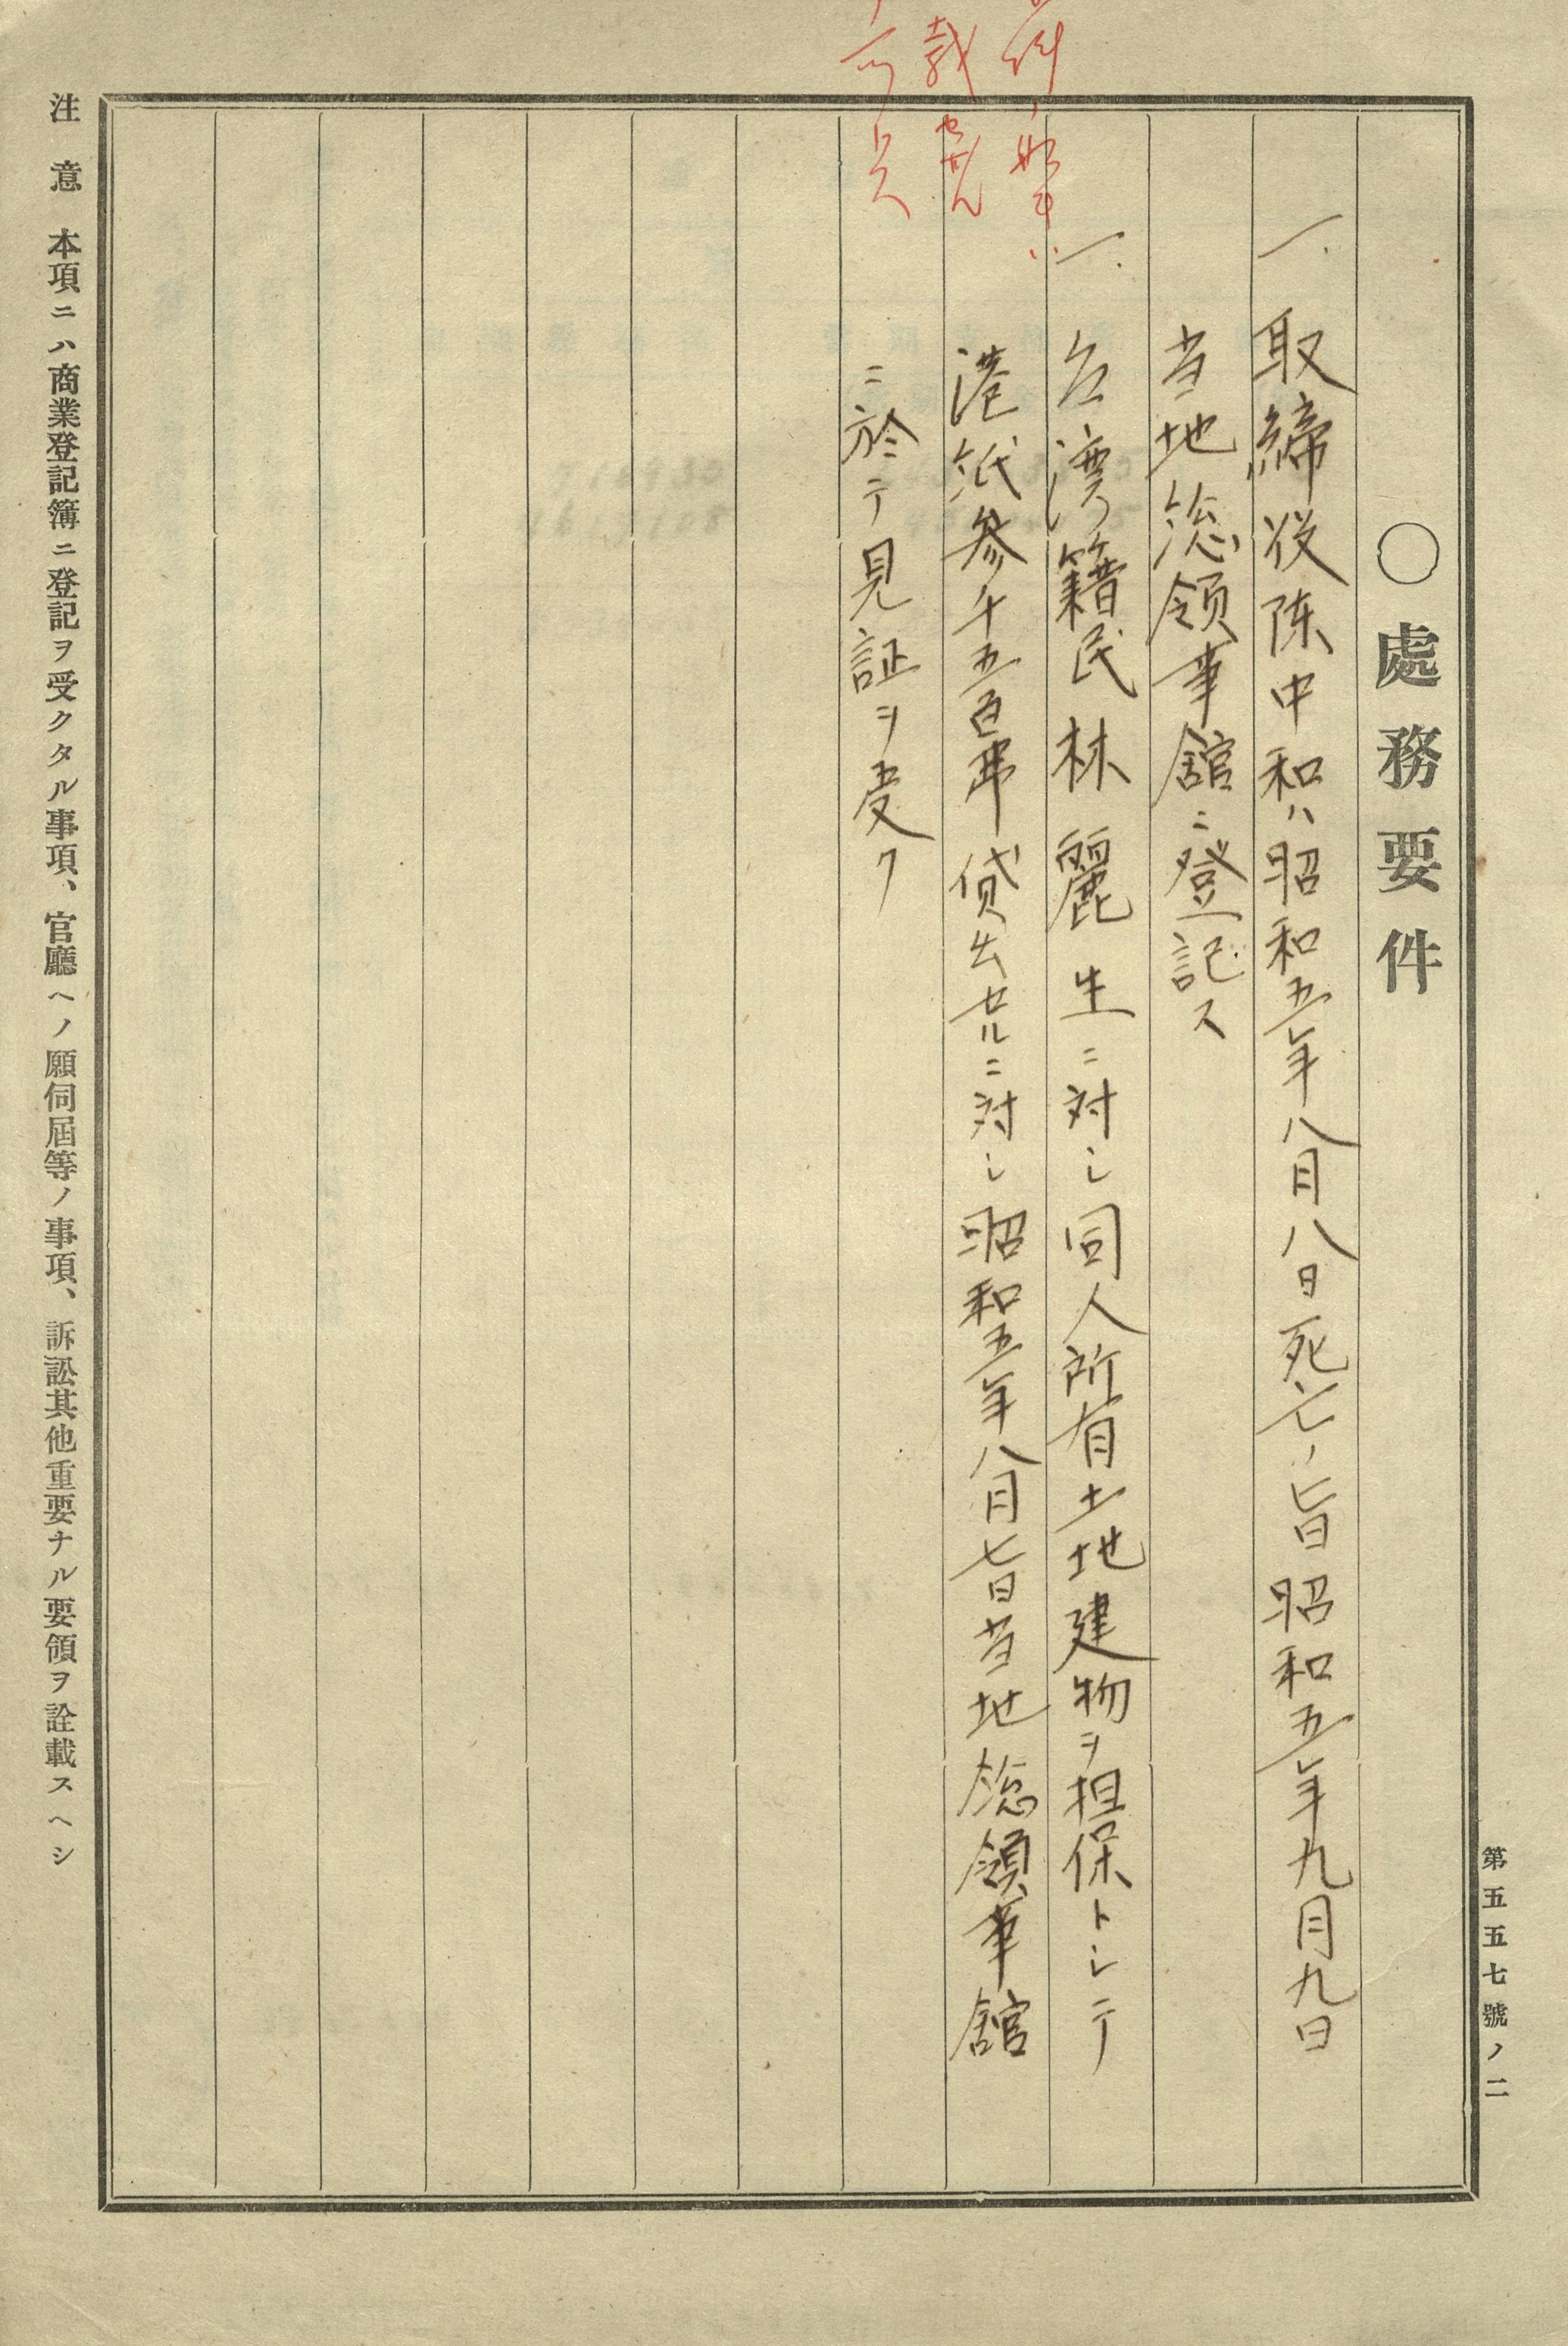 第五五七號ノ二
〇處務要件
一、取締役陳中和ハ昭和五年八月八日死亡ノ旨昭和五年九月九日
当地総領事館ニ登記ス
一、台湾籍民林麗生ニ対シ同人所有土地建物ヲ担保トシテ
港紙参千五百弗貸出セルニ対シ昭和五年八月七日当地総領事館
ニ於テ見証ヲ受ク
注意 本項ニハ商業登記簿ニ登記ヲ受クタル事項、官廳ヘノ願伺屆等ノ事項、訴訟其他重要ナル要領ヲ詮載スヘシ